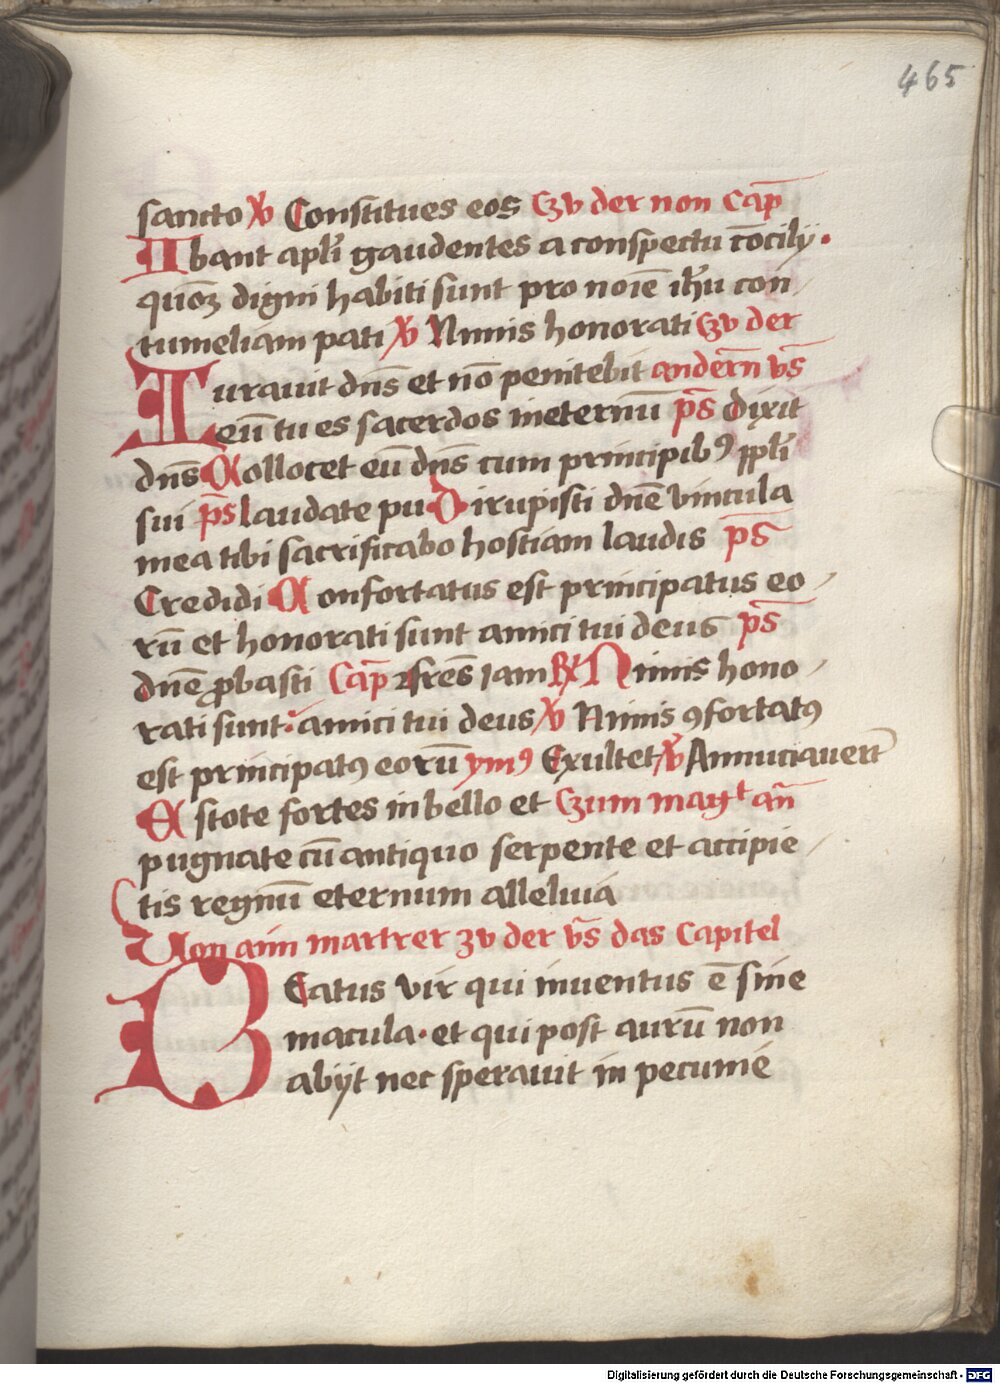 465
sancto v̄ Constitues eos Czv der non Cap̄
Ibant apl̄i gaudentes a conspectu cōcilij.
quōꝫ digni habiti sunt pro noīe ih̄u con
tumeliam pati v̄ Nimis honorati Czv der
Iurauit dn̄s et nō penitebit andern̄ vs̄
eū tu es sacerdos ineternū ps̄ dixit
dn̄s Collocet eū dn̄s cum principibꝰ ppl̄i
sui ps̄ laudate pu Dirupisti dn̄e vincula
mea tibi sacrificabo hostiam laudis ps̄
Credidi Confortatus est principatus eo
rū et honorati sunt amici tui deus ps̄
dn̄e ꝓbasti Cap̄ fres̄ iam ℟ Nimis hono
rati sunt: amici tui deus v̄ Nimis ꝯfortatꝰ
est principatꝰ eorū ymꝰ Exultet v̄ Annuciauert̄
Estote fortes in bello et Czum magᵗ an̄
pugnate cū antiquo serpente et accipie
tis regnū eternum alleluia
Von aim martrer zv der vs̄ das Capitel
BEatus vir qui inuentus ē sine
macula. et qui post aurū non
abijt nec sperauit in pecunie
Digitalisierung gefördert durch die Deutsche Forschungsgemeinschaft - DFG